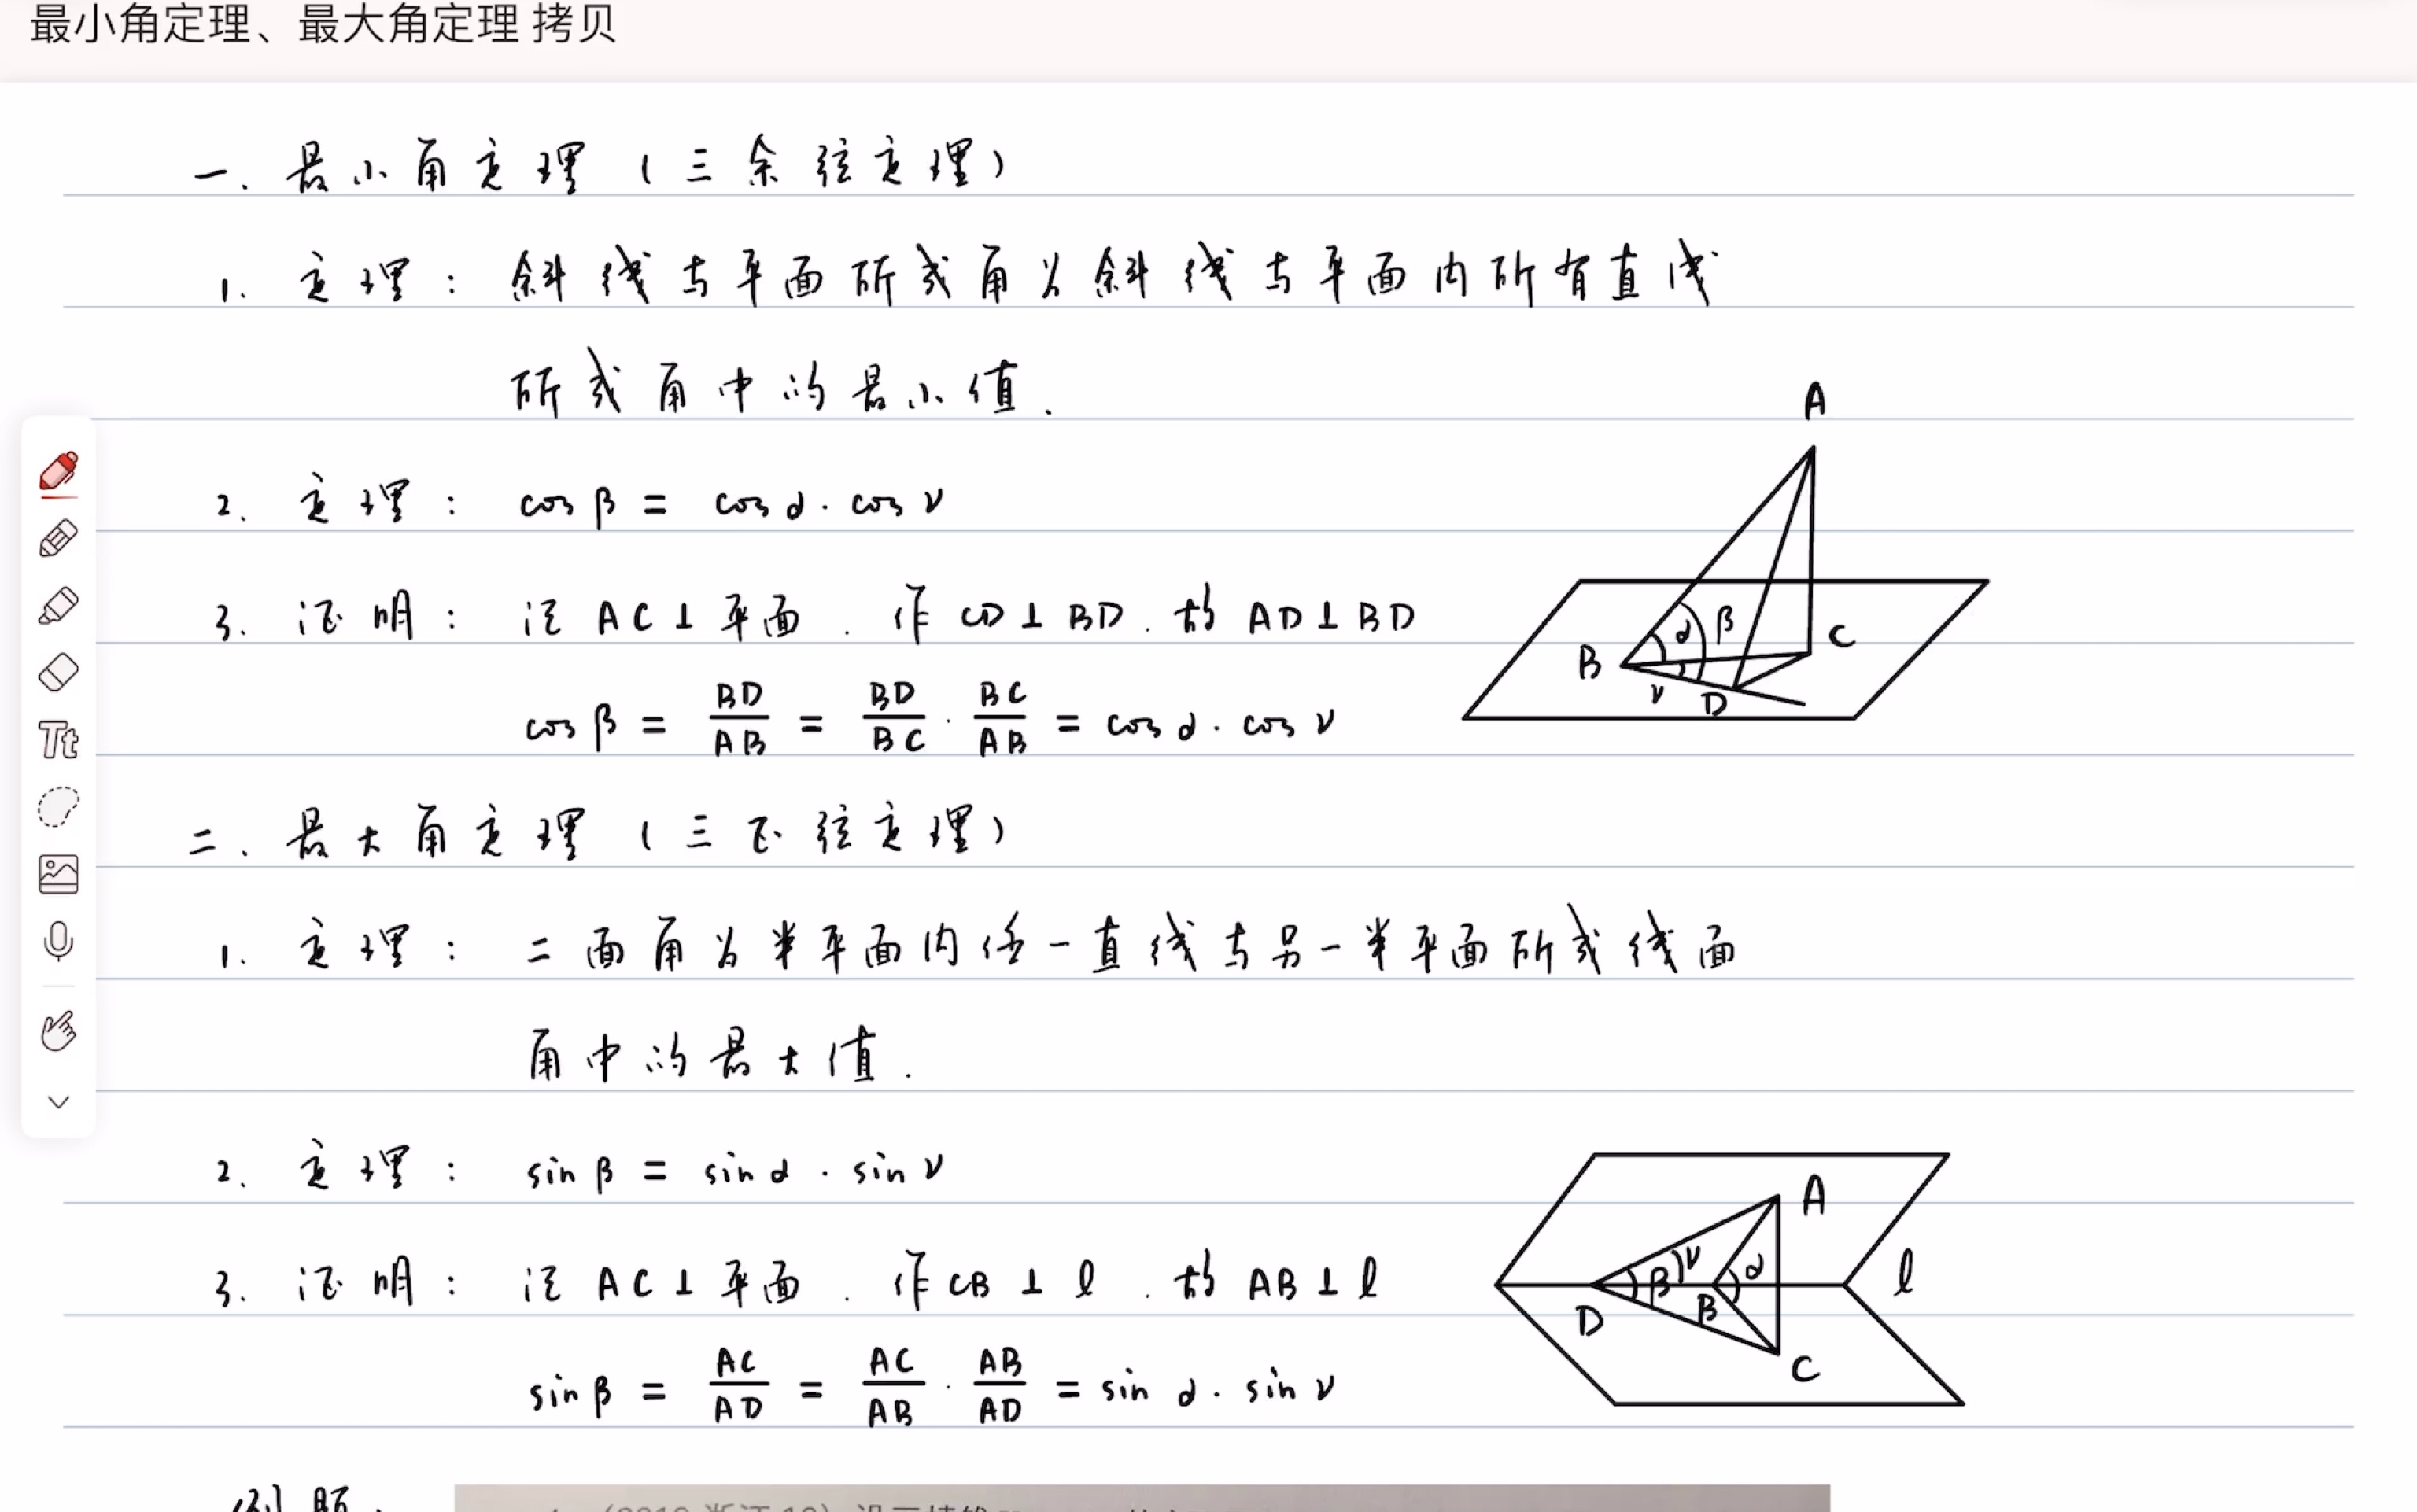 最小角定理、最大角定理 拷贝
一. 最小角定理(三余弦定理)
1. 定理: 斜线与平面所成角为斜线与平面内所有直线
所成角中的最小值.
2. 定理: cos β = cos α · cos γ
3. 证明: 记 AC ⊥ 平面. 作 CD ⊥ BD. 故 AD ⊥ BD
cos β = BD/AB = BD/BC · BC/AB = cos α · cos γ
A
B
C
D
α
β
γ
二. 最大角定理(三正弦定理)
1. 定理: 二面角为半平面内任一直线与另一半平面所成线面
角中的最大值.
2. 定理: sin β = sin α · sin γ
3. 证明: 记 AC ⊥ 平面. 作 CB ⊥ l. 故 AB ⊥ l
sin β = AC/AD = AC/AB · AB/AD = sin α · sin γ
A
γ
β
α
l
D
B
C
Tt
例题